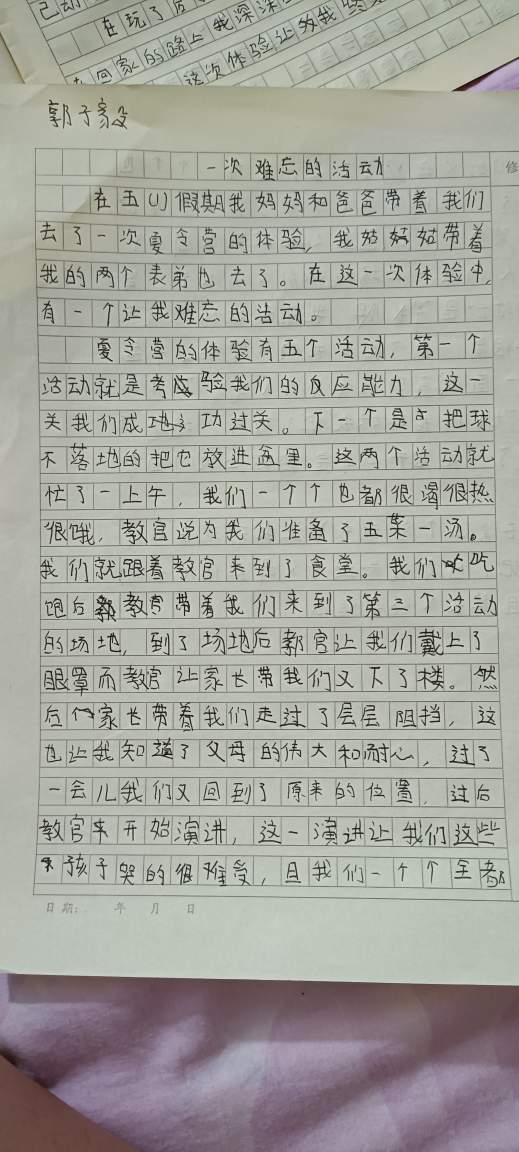 己动
在玩了
我深深
在回家的路上
这次体验让
郭子毅
一次难忘的活动
修
在五(1)假期我妈妈和爸爸带着我们
去了一次夏令营的体验,我姑姑姑带着
我的两个表弟也去了。在这一次体验中,
有一个让我难忘的活动。
夏令营的体验有五个活动,第一个
活动就是考验我们的反应能力,这一
关我们成功过关。下一个是把球
不落地的把它放进盆里。这两个活动就
忙了一上午,我们一个个也都很渴很热
很饿,教官说为我们准备了五菜一汤。
我们就跟着教官来到了食堂。我们吃
饱后教官带着我们来到了第三个活动
的场地,到了场地后教官让我们戴上了
眼罩而教官让家长带我们又下了楼。然
后家长带着我们走过了层层阻挡,这
也让我知道了父母的伟大和耐心,过了
一会儿我们又回到了原来的位置,过后
教官来开始演讲,这一演讲让我们这些
孩子哭的很难受,且我们一个个全都
日期: 年 月 日